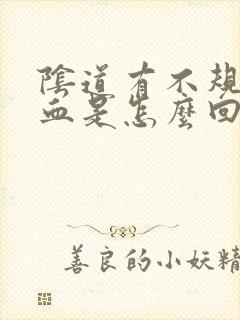 陰道有不規
血是怎麼回
善良的小妖精